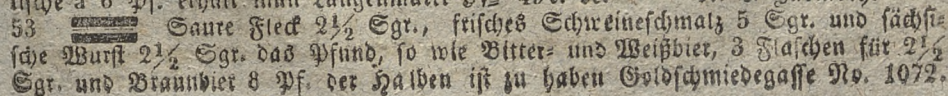 53 Saure Fleck 2½ Sgr., frisches Schweineschmalz 5 Sgr. und sächsi-
sche Wurst 2½ Sgr. das Pfund, so wie Bitter- und Weißbier, 3 Flaschen für 2½
Sgr. und Braunbier 8 Pf. der Halben ist zu haben Goldschmiedegasse No. 1072.